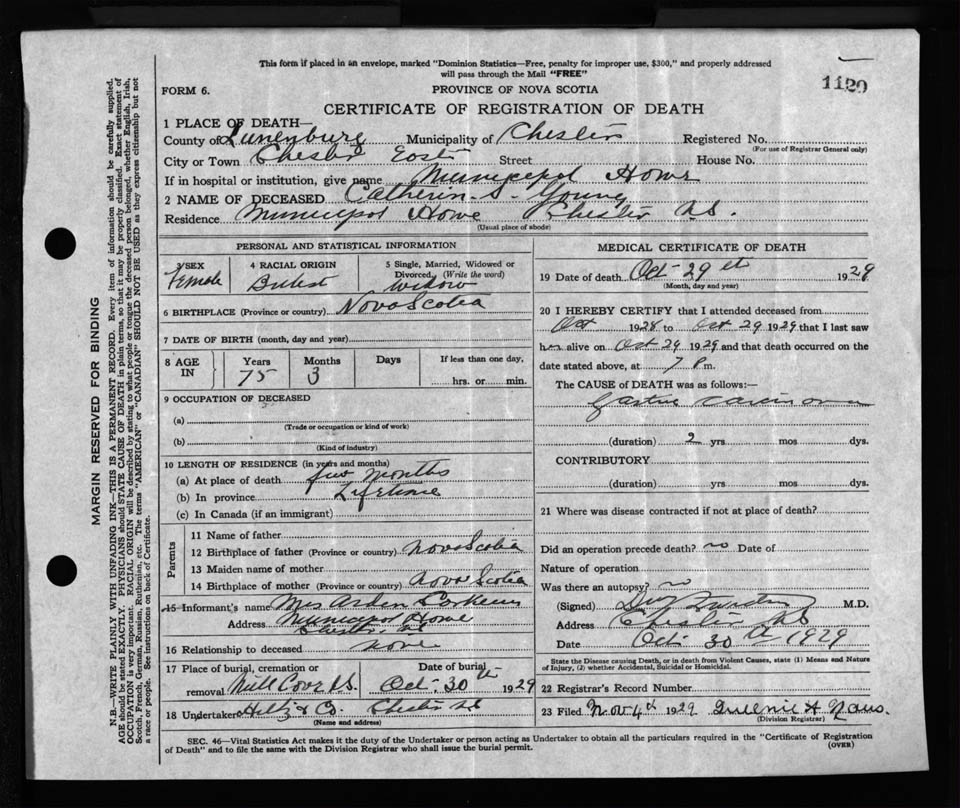 This form if placed in an envelope, marked "Dominion Statistics—Free, penalty for improper use, $300," and properly addressed
will pass through the Mail "FREE"
1120
FORM 6.
PROVINCE OF NOVA SCOTIA
CERTIFICATE OF REGISTRATION OF DEATH
1 PLACE OF DEATH—
County of Lunenburg Municipality of Chester Registered No.
(For use of Registrar General only)
City or Town Chester East Street House No.
If in hospital or institution, give name Municepol Howe
2 NAME OF DECEASED Catherin S. Young
Residence Municepol Howe Chester N.S.
(Usual place of abode)
PERSONAL AND STATISTICAL INFORMATION
3 SEX Female
4 RACIAL ORIGIN
5 Single, Married, Widowed or Divorced, (Write the word) Widow
6 BIRTHPLACE (Province or country) Nova Scotia
7 DATE OF BIRTH (month, day and year)
8 AGE IN Years 75 Months 3 Days If less than one day, hrs. or min.
9 OCCUPATION OF DECEASED
(a)
(Trade or occupation or kind of work)
(b)
(Kind of industry)
10 LENGTH OF RESIDENCE (in years and months)
(a) At place of death months
(b) In province Lifetime
(c) In Canada (if an immigrant)
Parents
11 Name of father
12 Birthplace of father (Province or country) Nova Scotia
13 Maiden name of mother
14 Birthplace of mother (Province or country) Nova Scotia
15 Informant's name Mrs Arden Corkum
Address Municepol Howe
Chester, N.S.
16 Relationship to deceased none
17 Place of burial, cremation or removal Mill Cove N.S. Date of burial Oct 30th 1929
18 Undertaker Hiltz & Co. Chester N.S.
(Name and address)
MEDICAL CERTIFICATE OF DEATH
19 Date of death Oct 29th 1929
(Month, day and year)
20 I HEREBY CERTIFY that I attended deceased from
Oct 1928 to Oct 29 1929 that I last saw
her alive on Oct 29 1929 and that death occurred on the
date stated above, at 7 P.m.
The CAUSE of DEATH was as follows:—
Gastric carcinoma
(duration) 2 yrs mos dys.
CONTRIBUTORY
(duration) yrs mos dys.
21 Where was disease contracted if not at place of death?
Did an operation precede death? no Date of
Nature of operation
Was there an autopsy? no
(Signed) M.D.
Address Chester N.S
Date Oct 30th 1929
State the Disease causing Death, or in death from Violent Causes, state (1) Means and Nature of Injury, (2) whether Accidental, Suicidal or Homicidal.
22 Registrar's Record Number
23 Filed Nov 4th 1929
(Division Registrar)
SEC. 46—Vital Statistics Act makes it the duty of the Undertaker or person acting as Undertaker to obtain all the particulars required in the "Certificate of Registration
of Death" and to file the same with the Division Registrar who shall issue the burial permit.
(OVER)
MARGIN RESERVED FOR BINDING
N.B.—WRITE PLAINLY WITH UNFADING INK—THIS IS A PERMANENT RECORD. Every item of information should be carefully supplied.
AGE should be stated EXACTLY. PHYSICIANS should STATE CAUSE OF DEATH in plain terms, so that it may be properly classified. Exact statement of
OCCUPATION is very important. RACIAL ORIGIN will be described by stating to what people or tongue the deceased person belonged, whether English, Irish,
Scotch, French, German, Russian, Ruthenian, etc. The terms "AMERICAN" or "CANADIAN" SHOULD NOT BE USED as they express citizenship but not
a race or people. See instructions on back of Certificate.